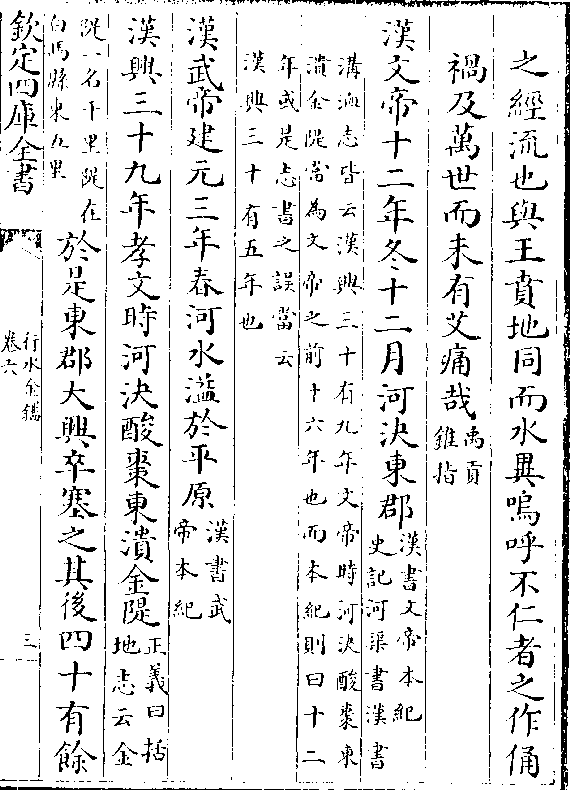 之經流也與王賁地同而水異嗚呼不仁者之作俑
禍及萬世而未有艾痛哉禹貢
錐指
漢文帝十二年冬十二月河決東郡漢書文帝本紀
史記河渠書漢書
溝洫志皆云漢興三十有九年文帝時河決酸棗東
潰金隄當為文帝之前十六年也而本紀則曰十二
年或是志書之誤當云
漢興三十有五年也
漢武帝建元三年春河水溢於平原漢書武
帝本紀
漢興三十九年孝文時河決酸棗東潰金隄正義曰括
地志云金
隄一名千里隄在
白馬縣東五里
於是東郡大興卒塞之其後四十有餘
欽定四庫全書
行水金鑑
卷六
三